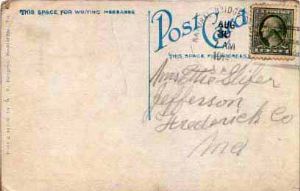 THIS SPACE FOR WRITING MESSAGES
Post Card
THIS SPACE FOR ADDRESS
AUG
30
AM
Mrs Otto Slifer
Jefferson
Frederick Co
Md